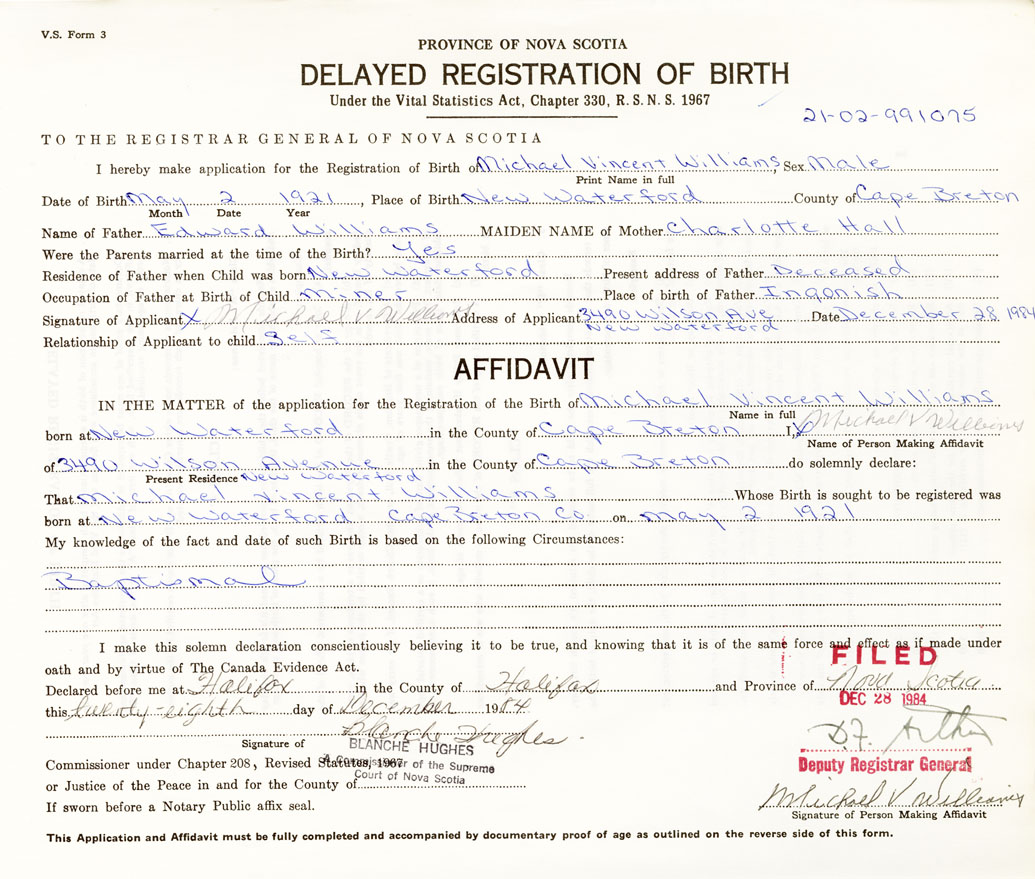 V.S. Form 3
PROVINCE OF NOVA SCOTIA
DELAYED REGISTRATION OF BIRTH
Under the Vital Statistics Act, Chapter 330, R. S. N. S. 1967
21-02-991075
TO THE REGISTRAR GENERAL OF NOVA SCOTIA
I hereby make application for the Registration of Birth of Michael Vincent Williams, Sex Male
Print Name in full
Date of Birth May 2 1921, Place of Birth New Waterford County of Cape Breton
Month Date Year
Name of Father Edward Williams MAIDEN NAME of Mother Charlotte Hall
Were the Parents married at the time of the Birth? Yes
Residence of Father when Child was born New Waterford Present address of Father Deceased
Occupation of Father at Birth of Child Miner Place of birth of Father Ingonish
Signature of Applicant X Michael V Williams Address of Applicant 3490 Wilson Ave Date December 28 1984
New Waterford
Relationship of Applicant to child Self
AFFIDAVIT
IN THE MATTER of the application for the Registration of the Birth of Michael Vincent Williams
Name in full
born at New Waterford in the County of Cape Breton I, X Michael V Williams
Name of Person Making Affidavit
of 3490 Wilson Avenue in the County of Cape Breton do solemnly declare:
Present Residence New Waterford
That Michael Vincent Williams Whose Birth is sought to be registered was
born at New Waterford Cape Breton Co on May 2 1921
My knowledge of the fact and date of such Birth is based on the following Circumstances:
Baptismal
I make this solemn declaration conscientiously believing it to be true, and knowing that it is of the same force and effect as if made under
oath and by virtue of The Canada Evidence Act.
FILED
Declared before me at Halifax in the County of Halifax and Province of Nova Scotia
DEC 28 1984
this twenty-eighth day of December 1984
Blanche Hughes
D.F. Arthur
Signature of
BLANCHE HUGHES
A Commissioner of the Supreme
Court of Nova Scotia
Commissioner under Chapter 208, Revised Statutes, 1967
Deputy Registrar General
or Justice of the Peace in and for the County of
Michael V Williams
If sworn before a Notary Public affix seal.
Signature of Person Making Affidavit
This Application and Affidavit must be fully completed and accompanied by documentary proof of age as outlined on the reverse side of this form.